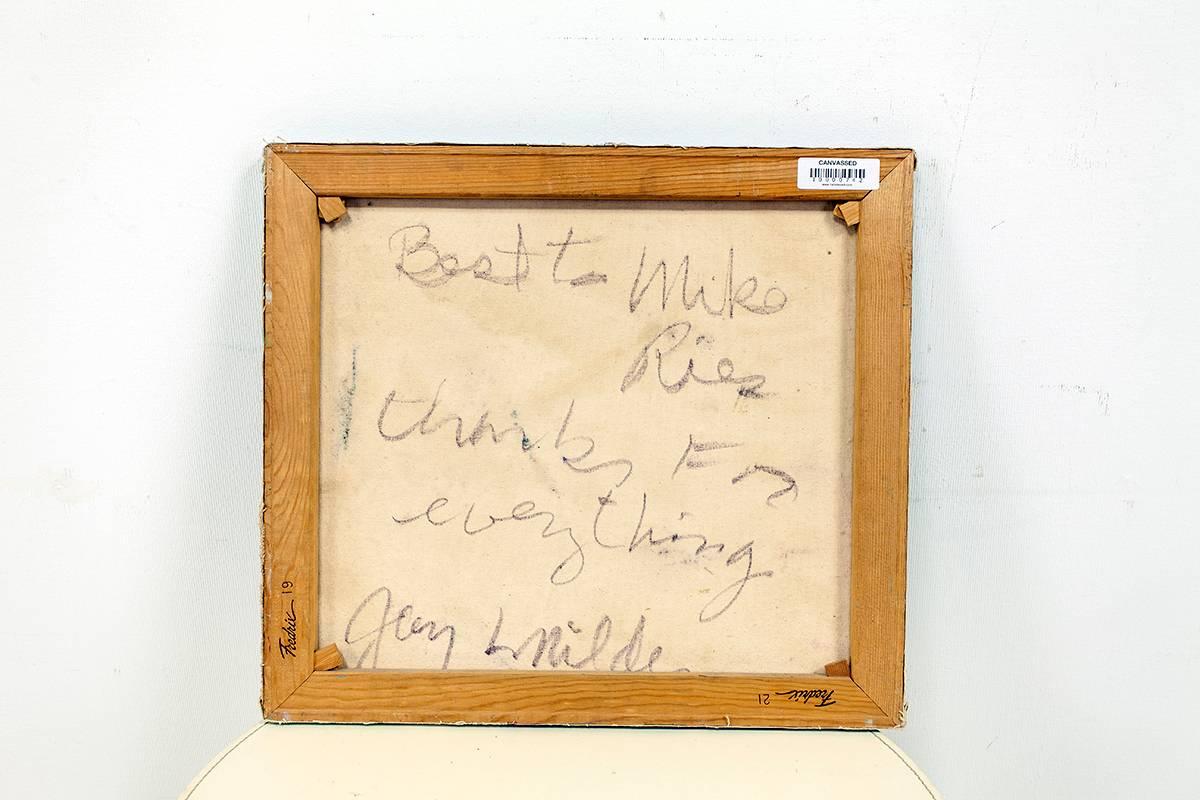 CANVASSED
Best to Mike
Ries
thanks For
everything
Jerry Wilde
Fredrix 19
Fredrix 21